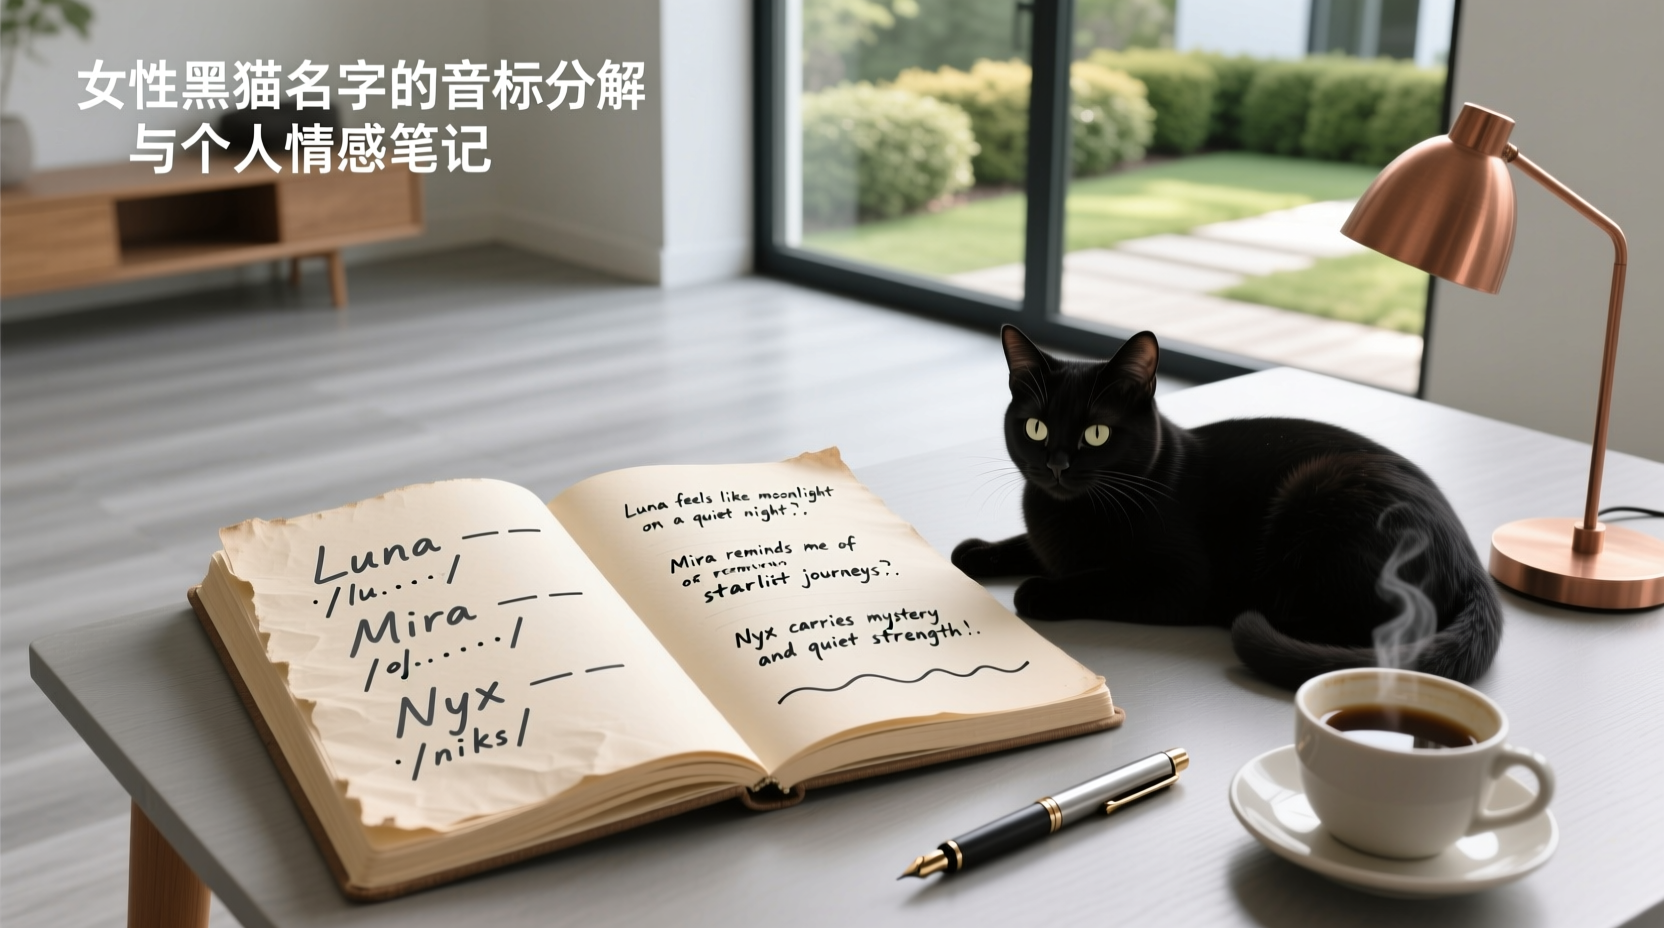 女性黑猫名字的音标分解
与个人情感笔记
Luna — —
·/lu····/
Mira — —
/ol······/
Nyx — —
·/niks/
Luna feels like moonlight
on a quiet night?.
Mira reminds me of
of
starlit journeys?.
Nyx carries mystery
and quiet strength!.